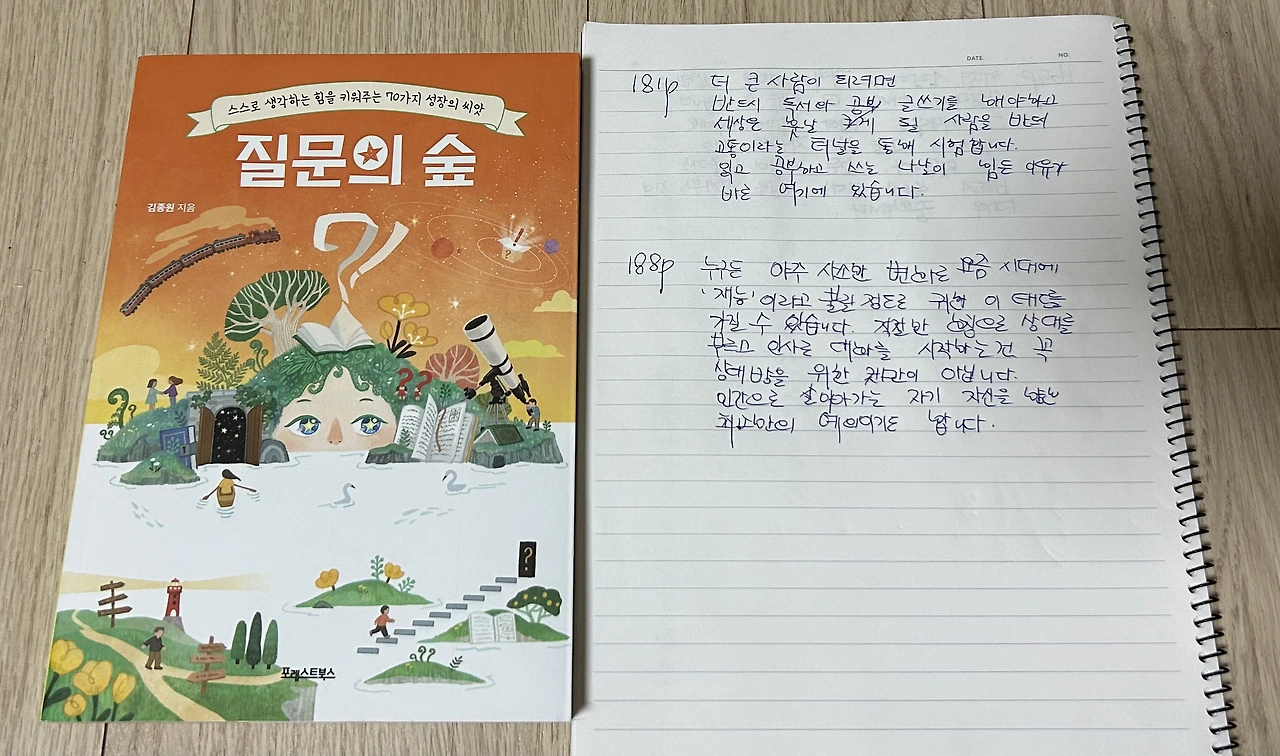 스스로 생각하는 힘을 키워주는 70가지 성장의 씨앗
질문의 숲
김종원 지음
?
포레스트북스
DATE.
NO.
181p 더 큰 사람이 되려면
반드시 독서와 공부 글쓰기를 해야하고
세상은 훗날 크게 될 사람을 반드시
고통이라는 터널을 통해 시험합니다.
읽고 공부하고 쓰는 나날이 힘든 이유가
바로 여기에 있습니다.
188p 누구든 아주 사소한 변화로 요즘 시대에
'재능'이라고 불릴 정도로 귀한 이 태도를
가질 수 있습니다. 적절한 호칭으로 상대를
부르고 인사로 대화를 시작하는건 꼭
상대방을 위한 것만이 아닙니다.
인간으로 살아가는 자기 자신을 향한
최소한의 예의이기도 합니다.